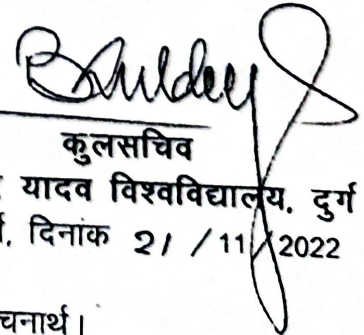 कुलसचिव
यादव विश्वविद्यालय, दुर्ग
दिनांक 21 / 11 / 2022